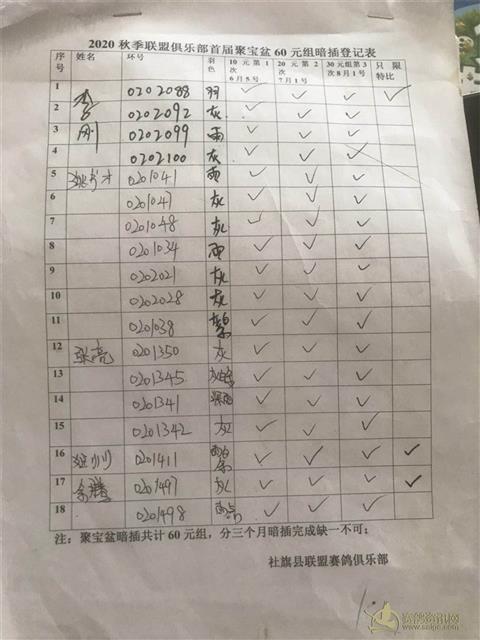 2020 秋季联盟俱乐部首届聚宝盆 60 元组暗插登记表
序号 姓名 环号 羽色 10 元第 1 次 6 月 5 号 20 元第 2 次 7 月 1 号 30元组第3次8月1号 只限特比
1 李 0202088 ✓ ✓ ✓ ✓
2 0202092 灰 ✓ ✓ ✓
3 刚 0202099 雨 ✓ ✓ ✓
4 0202100 灰 ✓ ✓ ✓
5 0201041 雨 ✓ ✓ ✓
6 0201047 灰 ✓ ✓ ✓
7 0201048 灰 ✓ ✓ ✓
8 0201034 雨 ✓ ✓ ✓
9 0202021 灰 ✓ ✓ ✓
10 0202028 灰 ✓ ✓ ✓
11 0201038 ✓ ✓ ✓
12 张亮 0201350 灰 ✓ ✓ ✓
13 0201345 ✓ ✓ ✓
14 0201341 ✓ ✓ ✓
15 0201342 灰 ✓ ✓ ✓
16 0201411 ✓ ✓ ✓ ✓
17 余腾 0201497 灰 ✓ ✓ ✓ ✓
18 0201498 雨点 ✓ ✓ ✓
注：聚宝盆暗插共计 60 元组，分三个月暗插完成缺一不可；
社旗县联盟赛鸽俱乐部
赛鸽资讯网
www.saige.com